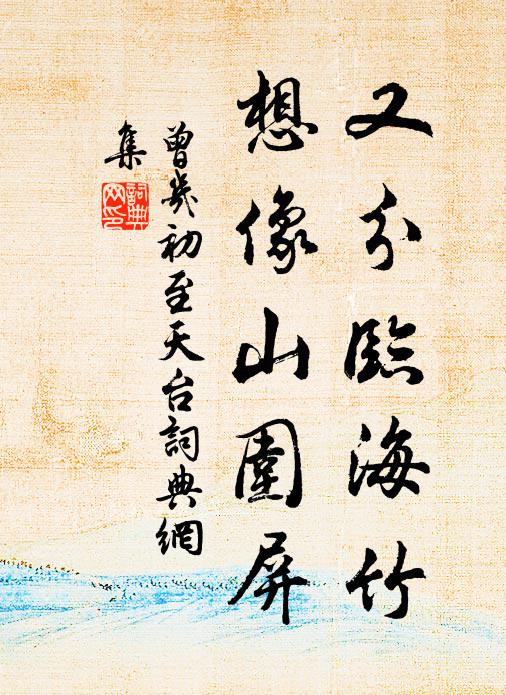 又分臨海竹
想像山圍屏
曾幾初至天台詞典網
集
詞典
网印